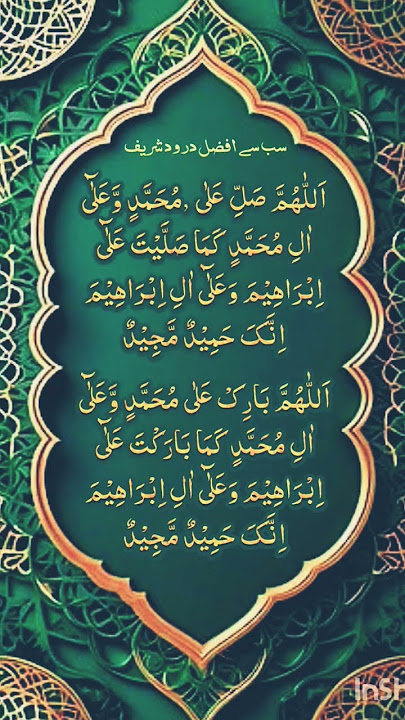 سب سے افضل درود شریف
اَللّٰهُمَّ صَلِّ عَلٰی ,مُحَمَّدٍ وَّعَلٰٓی
اٰلِ مُحَمَّدٍ کَمَا صَلَّیْتَ عَلٰٓی
اِبْرَاهِیْمَ وَعَلٰٓی اٰلِ اِبْرَاهِیْمَ
اِنَّکَ حَمِیْدٌ مَّجِیْدٌ
اَللّٰهُمَّ بَارِکْ عَلٰی مُحَمَّدٍ وَّعَلٰٓی
اٰلِ مُحَمَّدٍ کَمَا بَارَکْتَ عَلٰٓی
اِبْرَاهِیْمَ وَعَلٰٓی اٰلِ اِبْرَاهِیْمَ
اِنَّکَ حَمِیْدٌ مَّجِیْدٌ